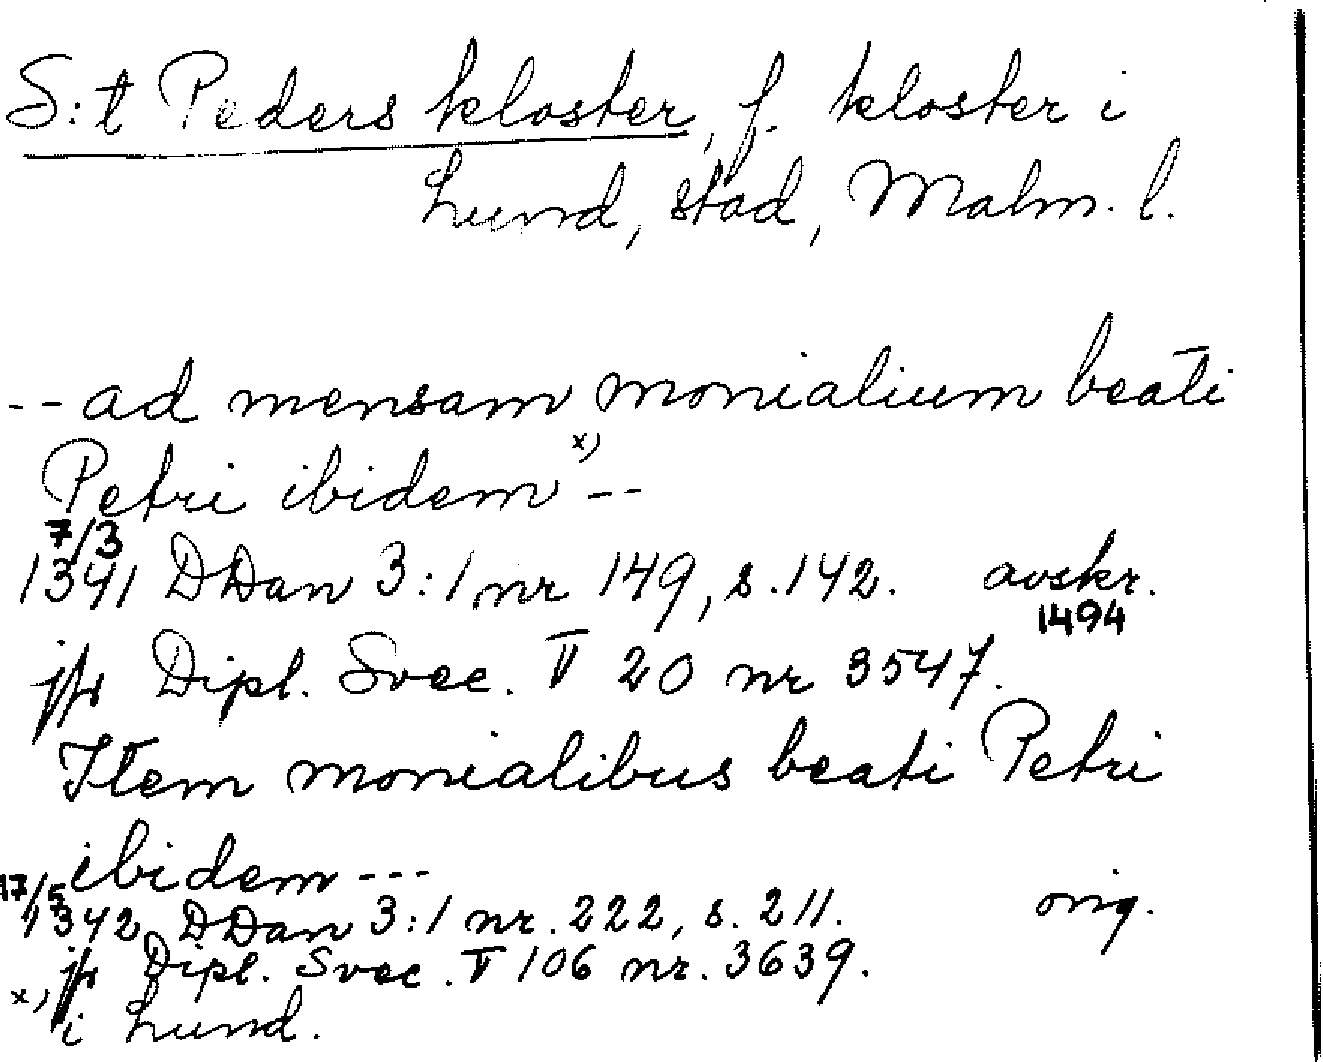 S:t Peders kloster, f. kloster i
Lund, stad, Malm. l.
-- ad mensam monialium beati
Petri ibidem x) --
7/3
1341 DDan 3:1 nr 149, s. 142. avskr.
1494
jfr Dipl. Svec. V 20 nr 3547.
Item monialibus beati Petri
ibidem ---
17/5
1342 DDan 3:1 nr. 222, s. 211. orig.
jfr Dipl. Svec. V 106 nr. 3639.
x) i Lund.